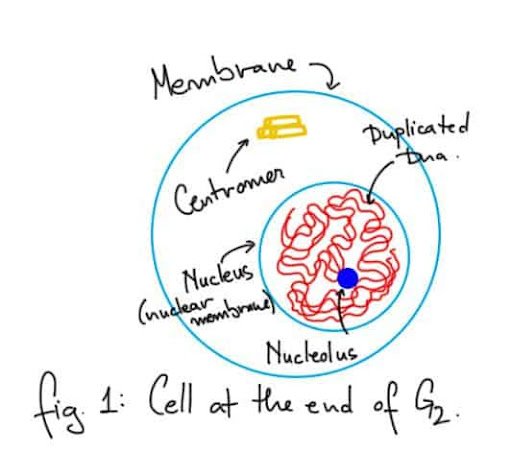 Membrane
Duplicated
Dna.
Centromer
Nucleus
(nuclear
membrane)
Nucleolus
fig. 1: Cell at the end of G₂.